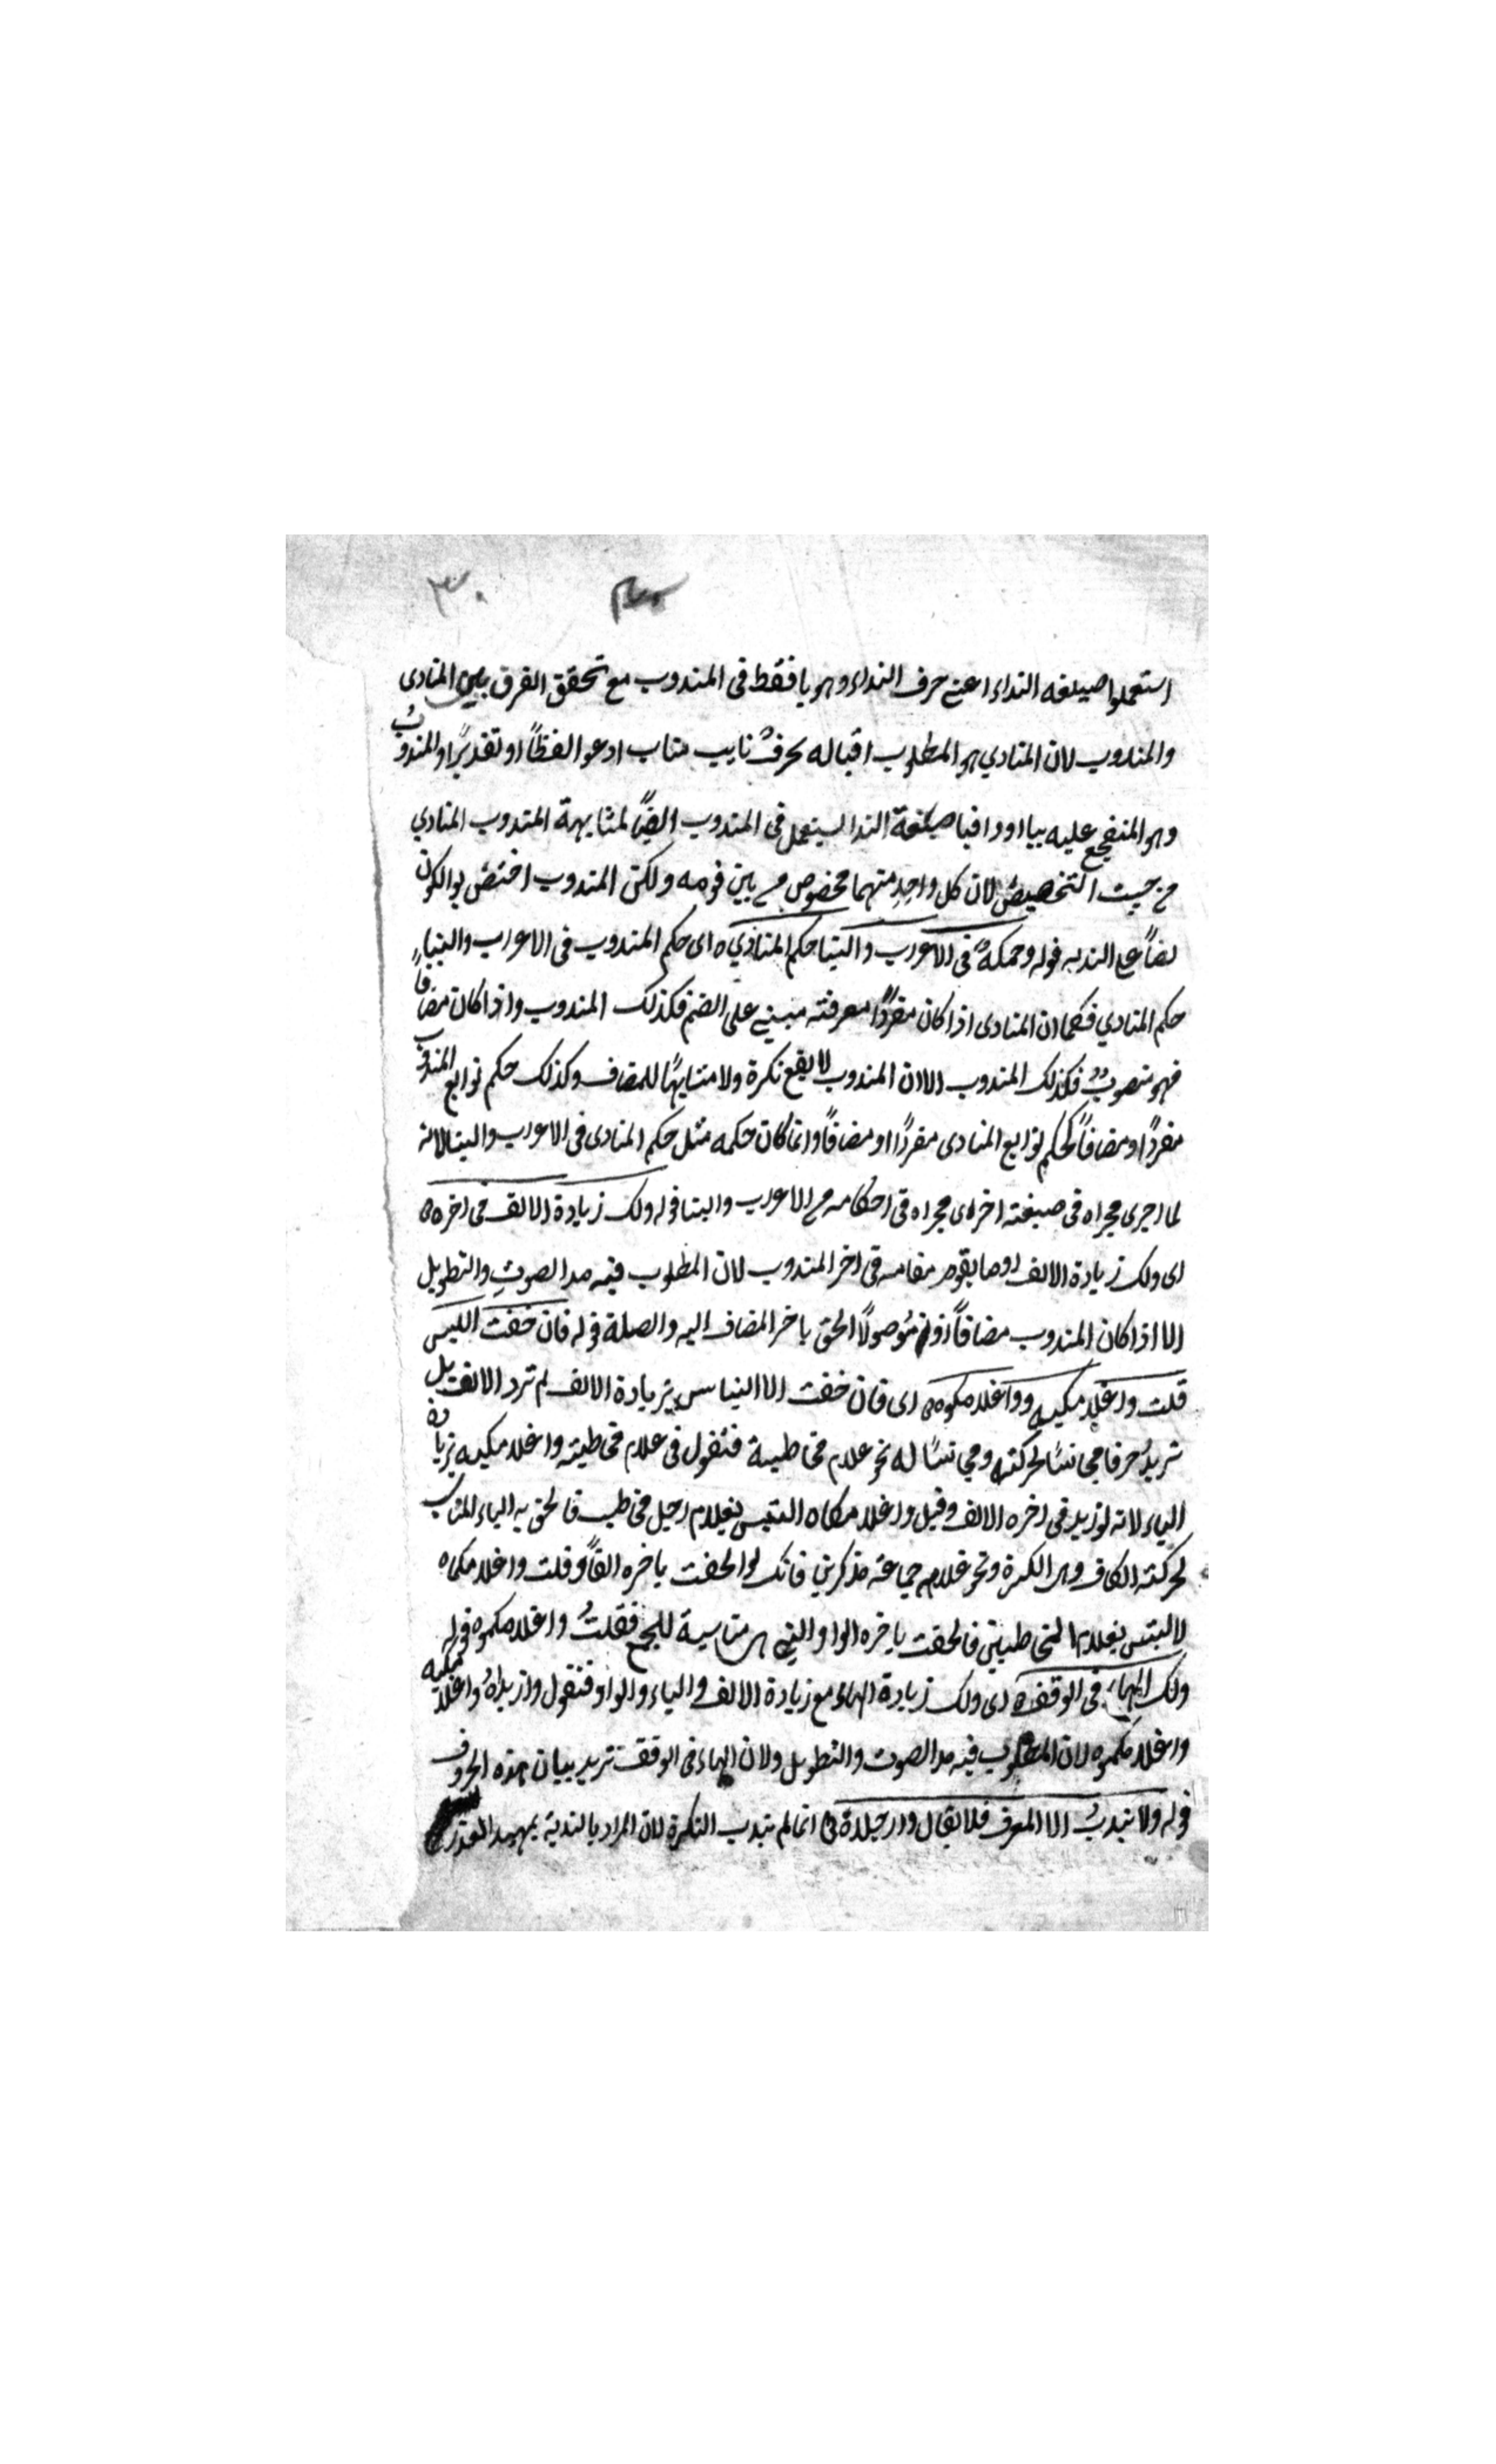 ٣٠
استعملوا صيغه النداء اعنى حرف النداء وهو يا فقط فى المندوب مع تحقق الفرق بين المنادى
والمندوب لان المنادي هو المطلوب اقباله بحرف نايب مناب ادعوا لفظًا او تقديرًا والمندوب
وهو المتفجع عليه بيا او وا فيا صيغة الندا ليستعمل فى المندوب ايضًا لمشابهة المندوب المنادي
من حيث التخصيص لان كل واحدٍ منهما مخصوص من بين قومه ولكن المندوب اختص بوا لكون
نصًا على الندبه قوله وحكمهُ فى الاعراب والبنا حكم المنادي ه اى حكم المندوب فى الاعراب والبناء
حكم المنادي فكما ان المنادى اذا كان مفردًا معرفته مبنى على الضم فكذلك المندوب واذا كان مضافًا
فهو منصوبٌ فكذلك المندوب الا ان المندوب لا يقع نكرة ولا مشابهًا للمضاف وكذلك حكم توابع المندوب
مفردًا ومضافًا كحكم توابع المنادى مفردًا او مضافًا وانما كان حكمه مثل حكم المنادى فى الاعراب والبنا لانه
لما اجرى مجراه فى صيغته اجرى مجراه فى احكامه من الاعراب والبنا قوله ولك زيادة الالف فى اخره ه
اى ولك زيادة الالف او ما يقوم مقامه فى اخر المندوب لان المطلوب فيه مد الصوتِ والتطويل
الا اذا كان المندوب مضافًا او موصولًا الحق باخر المضاف اليه والصلة قوله فان خفت اللبس
قلت واغلامكيه وواغلامكموه ه اى فان خفت الالتباس بزيادة الالف لم تزد الالف بل
تريدُ حرفا مجانسًا لحركته ومجانسًا له نحو غلام مخاطبة فتقول فى غلام مخاطبته واغلامكيه بزيادة
الياء لانه لو زيد فى اخره الالف وقيل واغلامكاه التبس بغلام رجل مخاطب فالحق به الياء المناسب
لحركته الكاف وهى الكسرة ونحو غلام جماعة مذكرين فانك لو الحقت باخره الفًا وقلت واغلامكماه
لالتبس بغلام المخاطبين فالحقت باخره الواو التى هى مناسبة للجمع فقلتُ واغلامكموه قوله
ولك الهاء فى الوقف ه اى ولك زيادة الهاء مع زيادة الالف والياء والواو فتقول وازيداهُ واغلامكيه
واغلامكموه لان المطلوب فيه مد الصوت والتطويل ولان الهاء فى الوقف تزيد بيان هذه الحروف
قوله ولا يندبُ الا المعرف فلا يقال وارجلاه ه انما لم يندب النكرة لان المراد بالندبة تمهيد العذر